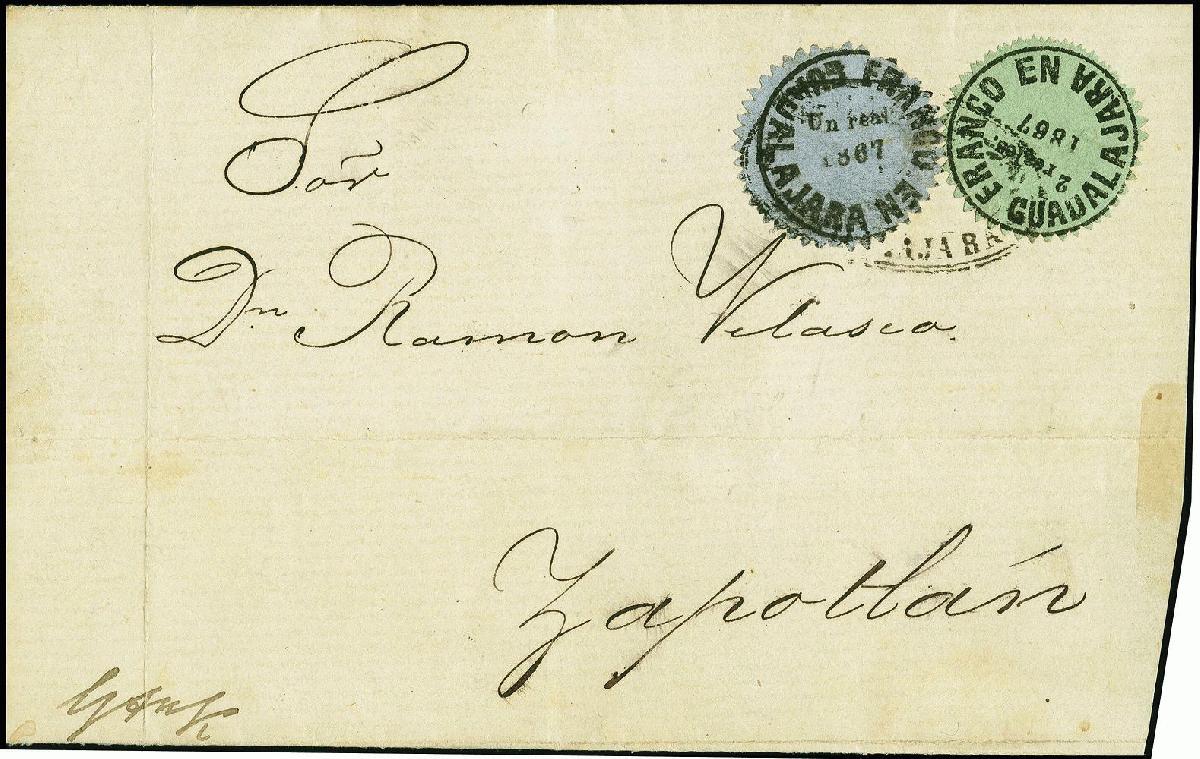 Sor̃
Dn Ramon Velasco.
Zapotlán
FRANCO EN GUADALAJARA
Un real
1867
FRANCO EN GUADALAJARA
2 reales
1867
LAJARA